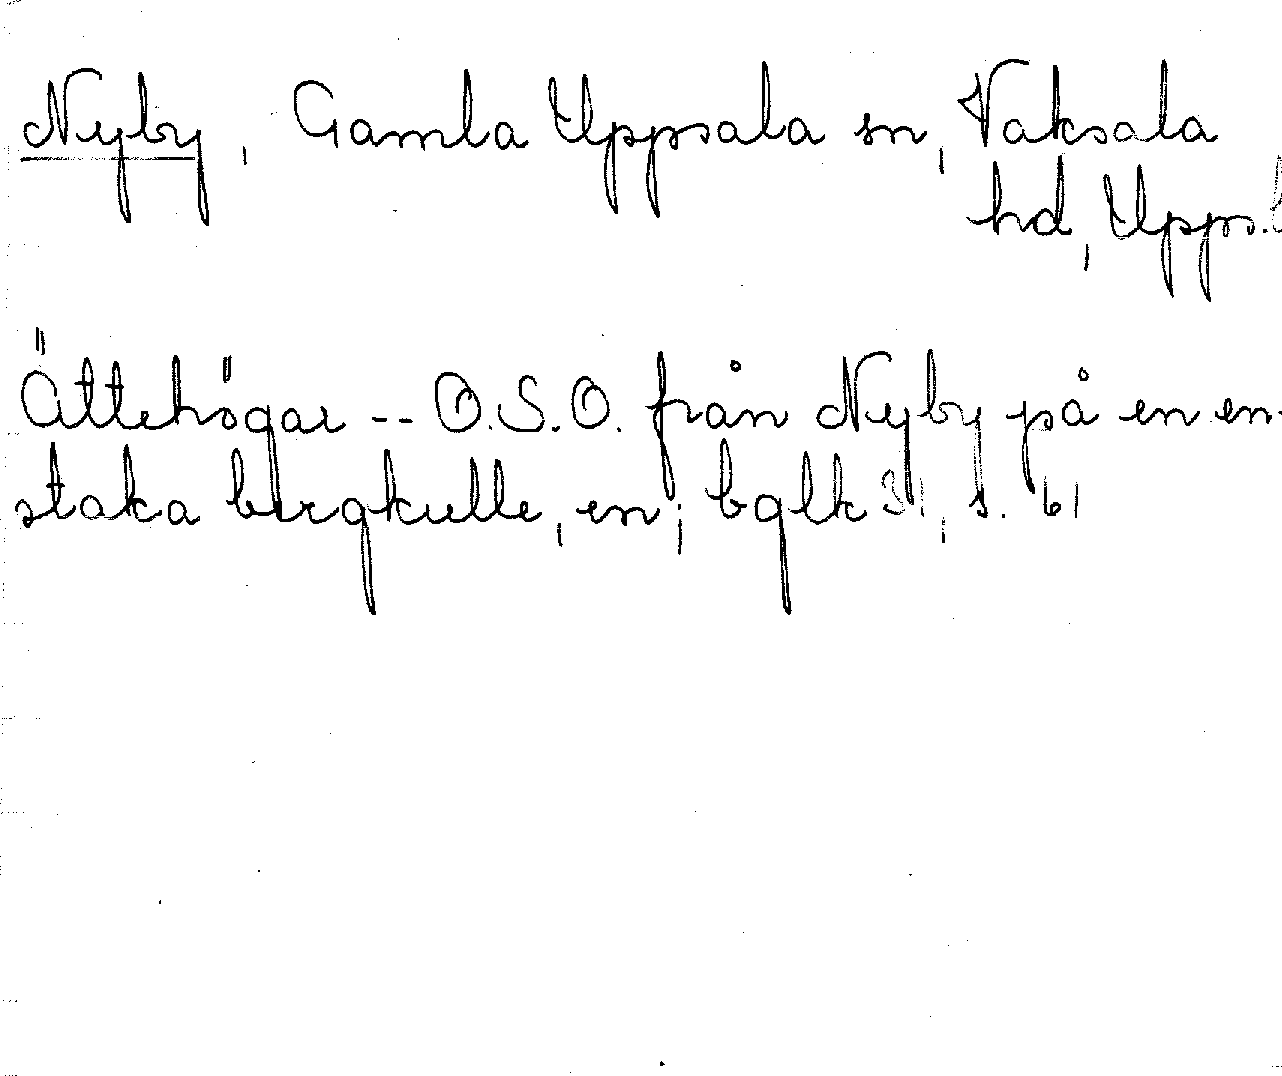 Nyby, Gamla Uppsala sn, Vaksala
hd, Upps.l
Ättehögar -- O.S.O. från Nyby på en en-
staka bergkulle, en; bglk 31, s. 61